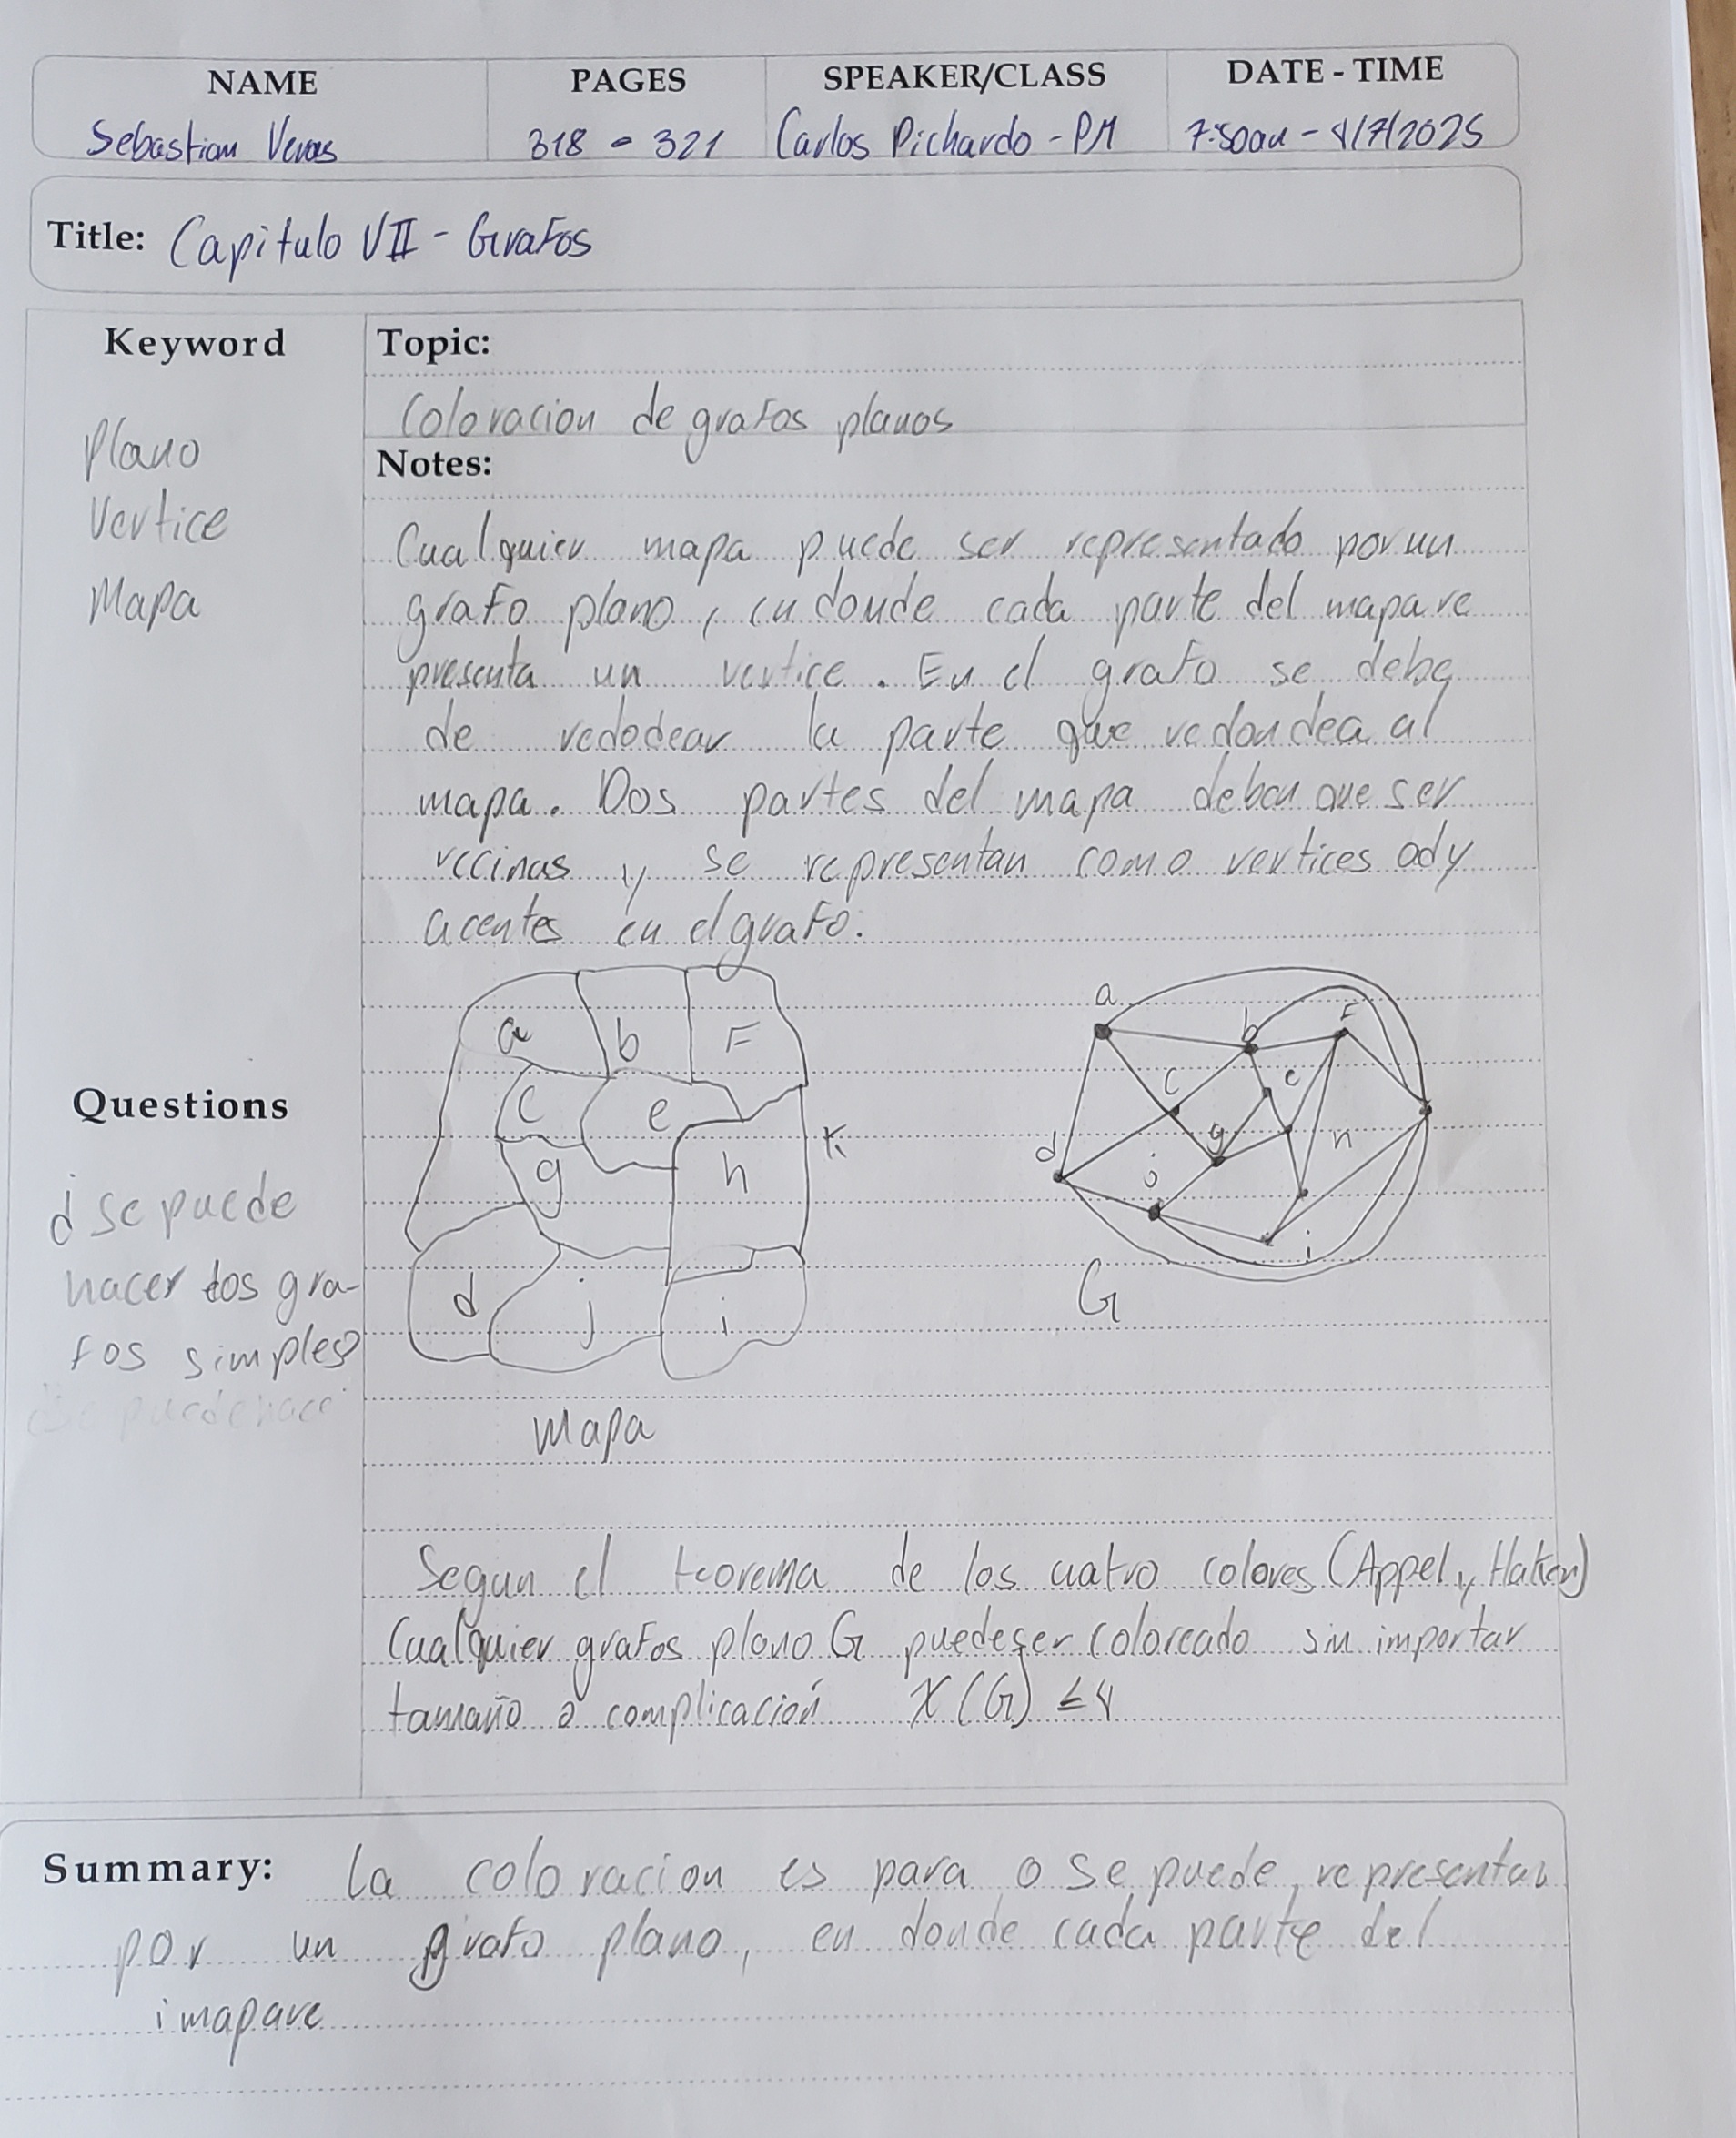 NAME PAGES SPEAKER/CLASS DATE - TIME
Sebastian Veras 318 - 321 Carlos Pichardo - PM 7:50am - 4/7/2025
Title: Capitulo VII - Grafos
Keyword
Plano
Vertice
Mapa
Topic:
Coloracion de grafos planos
Notes:
Cualquier mapa puede ser representado por un
grafo plano, en donde cada parte del mapa re
presenta un vertice. En el grafo se debe
de redodear la parte que redondea al
mapa. Dos partes del mapa deben que ser
vecinas y se representan como vertices ady
acentes en el grafo.
a b F
c e
g h K
d j i
Mapa
a b F
c e
d g h
j i
G
Questions
¿se puede
hacer dos gra-
fos simples?
Se puede hace
Segun el teorema de los cuatro colores (Appel y Haken)
Cualquier grafos plano G puede ser coloreado sin importar
tamaño o complicación X(G) ≤4
Summary: La coloracion es para o se puede, representar
por un grafo plano, en donde cada parte del
mapa re